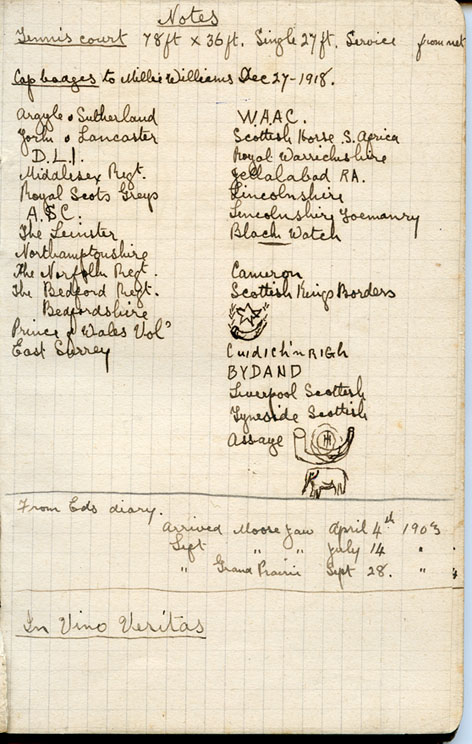 Notes
Tennis court 78ft x 36ft. Single 27ft. Service from net
Cap badges to Millie Williams Dec 27-1918.
Argyle & Sutherland
York & Lancaster
D.L.I.
Middlesex Regt.
Royal Scots Greys
A.S.C.
The Leinster
Northamptonshire
The Norfolk Regt.
The Bedford Regt.
Bedfordshire
Prince of Wales Vol's
East Surrey
W.A.A.C.
Scottish Horse S. Africa
Royal Warrickshire
Jellalabad RA.
Lincolnshire
Lincolnshire Yoemanry
Black Watch
Cameron
Scottish Kings Borders
Cuidich'n Righ
BYDAND
Liverpool Scottish
Tyneside Scottish
Assaye
From Eds diary.
Arrived Moose Jaw April 4th 1903
Left " " July 14 "
" Grand Prairie Sept 28. "
In Vino Veritas